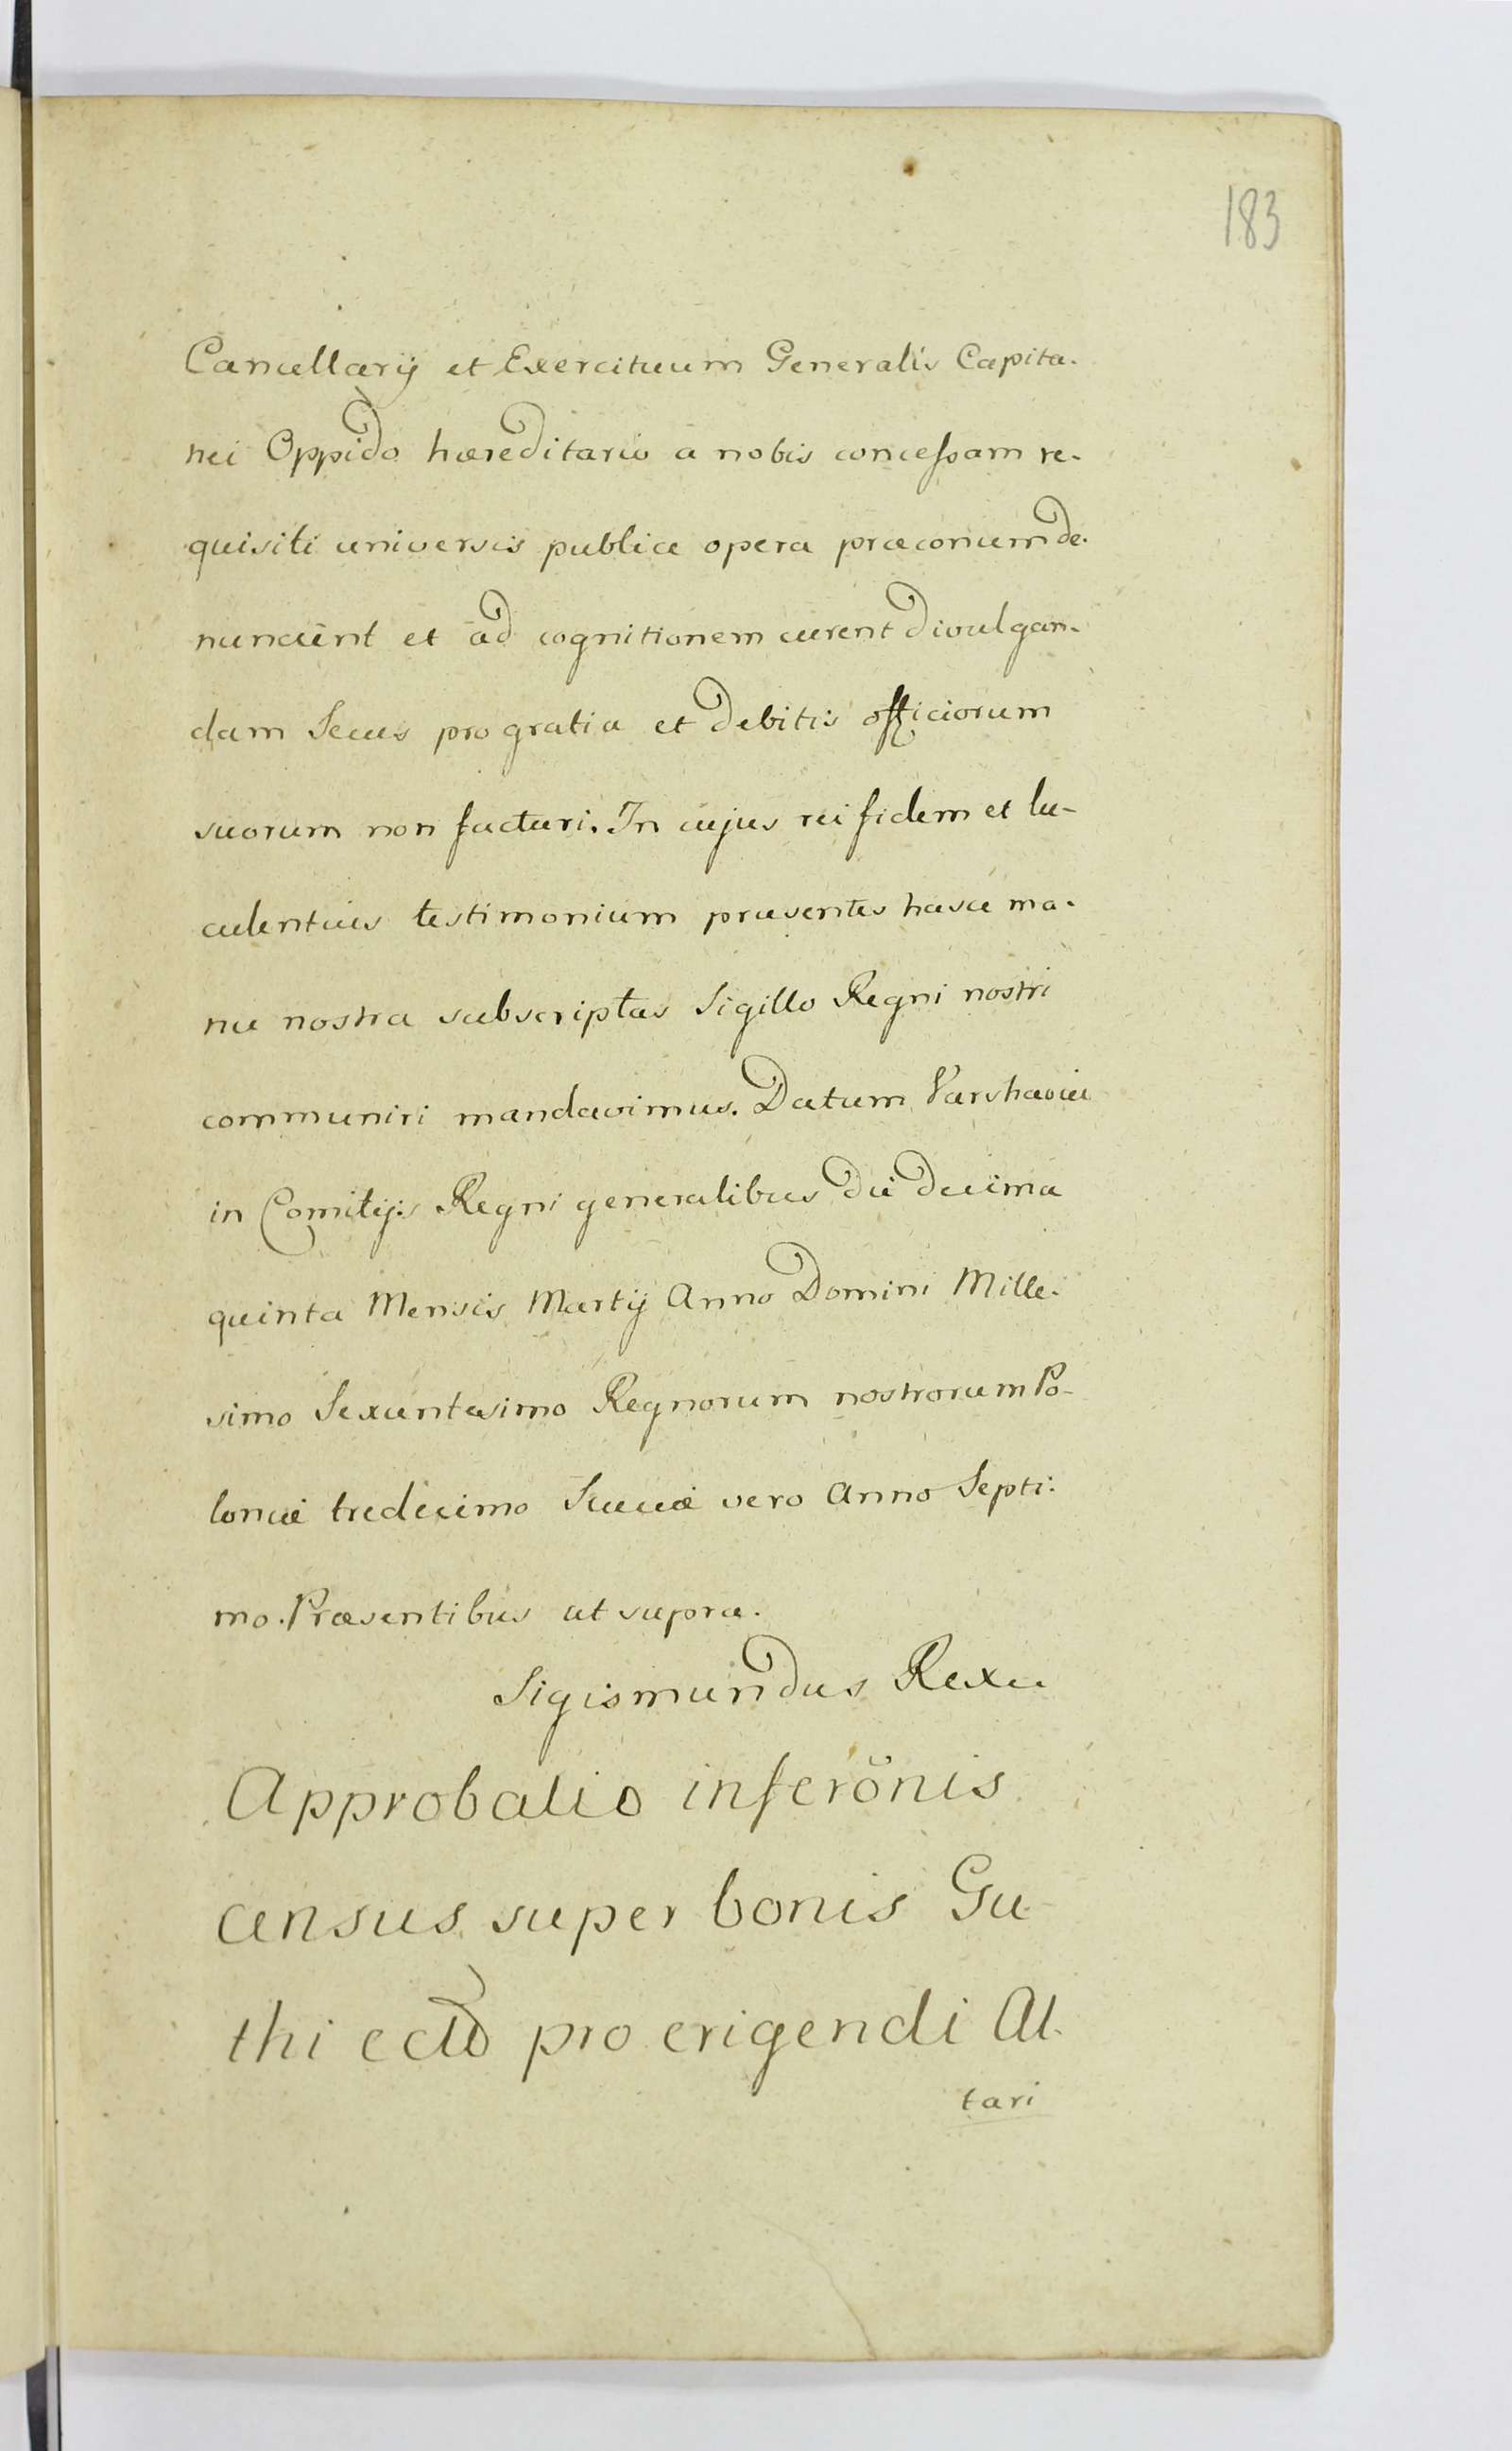 183
Cancellarij et Exercituum Generalis Capita-
nei Oppido hæreditario a nobis concessam re-
quisiti universis publice opera præconum de-
nuncient et ad cognitionem curent divulgan-
dam Secus pro gratia et debitis officiorum
suorum non facturi. In cujus rei fidem et lu-
culentius testimonium præsentes hasce ma-
nu nostra subscriptas Sigillo Regni nostri
communiri mandavimus. Datum Varshaviæ
in Comitijs Regni generalibus die decima
quinta Mensis Martij Anno Domini Mille-
simo Sexcentesimo Regnorum nostrorum Po-
loniæ tredecimo Sueciæ vero Anno Septi-
mo. Præsentibus ut supra.
Sigismundus Rex
Approbatio inserönis
census super bonis Gu-
thi pro erigendi Al-
tari